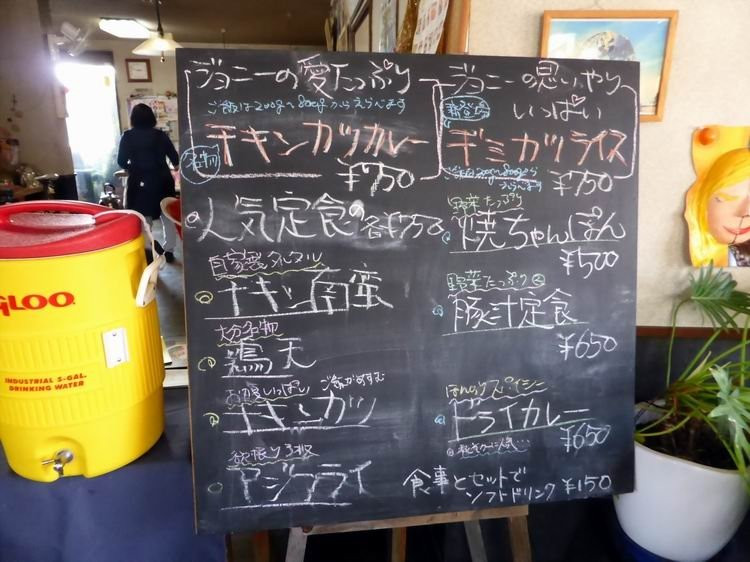 ジョニーの愛たっぷり
ご飯は200g~800gからえらべます
チキンカツカレー
名物
¥750
ジョニーの思いやり
いっぱい
ギミカツライス
¥750
人気定食 各¥750
自家製タルタル
チキン南蛮
大分名物
鶏天
お腹いっぱい ご飯がすすむ
チキンカツ
アジフライ
野菜たっぷり
焼ちゃんぽん
¥500
野菜たっぷり
豚汁定食
¥650
ほんのりスパイシー
ドライカレー
¥650
食事とセットで
ソフトドリンク ¥150
IGLOO
INDUSTRIAL 5-GAL.
DRINKING WATER